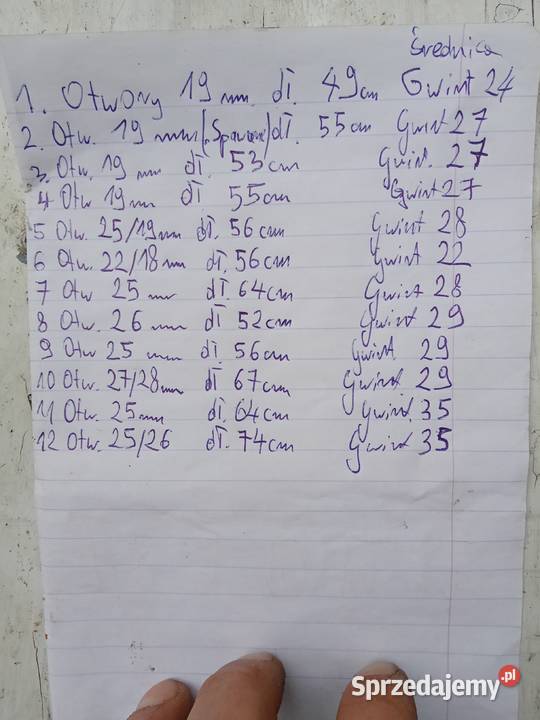 Średnica
1. Otwory 19 mm dł. 49cm Gwint 24
2. Otw. 19 mm (Spawane) dł. 55cm Gwint 27
3. Otw. 19 mm dł. 53cm Gwint. 27
4 Otw 19mm dł 55cm Gwint 27
5 Otw. 25/19mm dł. 56cm Gwint 28
6 Otw. 22/18mm dł. 56cm Gwint 22
7 Otw 25 mm dł. 64cm Gwint 28
8 Otw. 26 mm dł 52cm Gwint 29
9 Otw 25 mm dł. 56cm Gwint 29
10 Otw. 27/28mm dł 67cm Gwint 29
11 Otw. 25mm dł. 64cm Gwint. 35
12 Otw. 25/26 dł. 74cm Gwint. 35
Sprzedajemy.pl